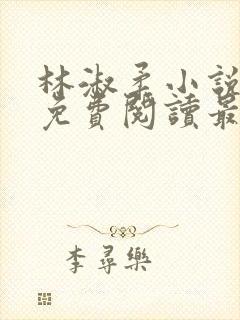 林淑柔小說
免費閱讀最
李尋樂